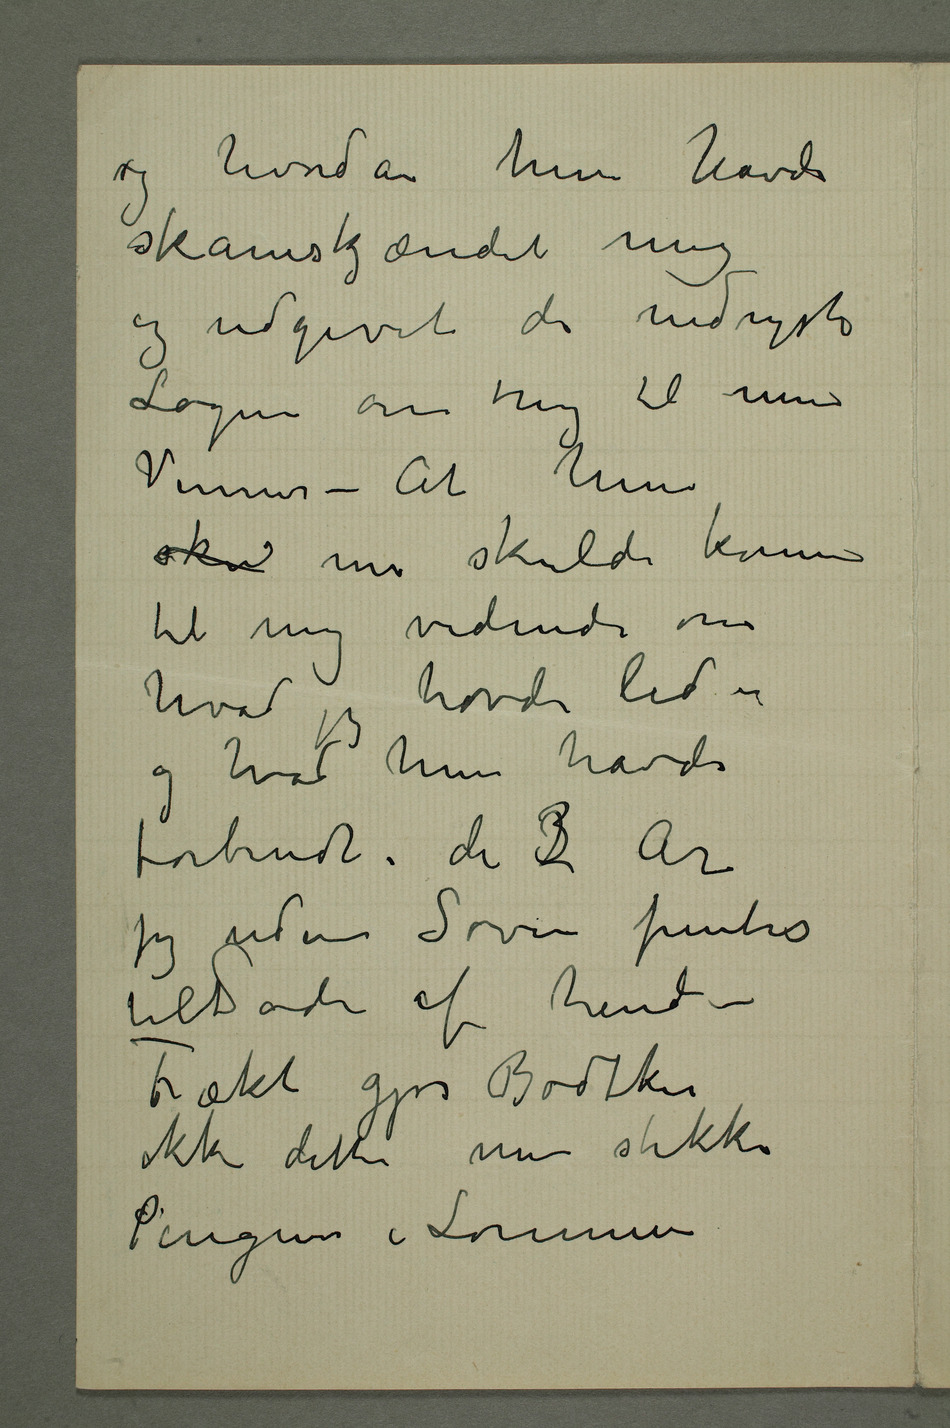 og hvordan hun havde
skamskjændet mig
og udgivet de nedrigste
Løgne om mig til mine
Venner – At hun
sku nu skulde komme
til mig vidende om
hvad jeg havde lidt
og hvad hun havde
forbrudt i de 3 År
jeg uden Søvn
tilbords af hende –
Frækt gjør Bødtker
ikke dette men stikke
Pengene i Lommen